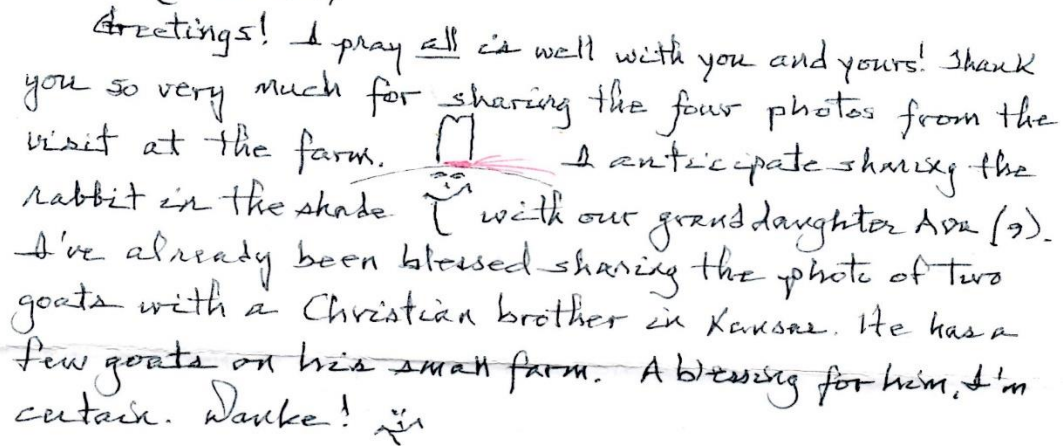 Greetings! I pray all is well with you and yours! Thank
you so very much for sharing the four photos from the
visit at the farm. I anticipate sharing the
rabbit in the shade with our granddaughter Ava (9).
I've already been blessed sharing the photo of two
goats with a Christian brother in Kansas. He has a
few goats on his small farm. A blessing for him, I'm
certain. Danke!